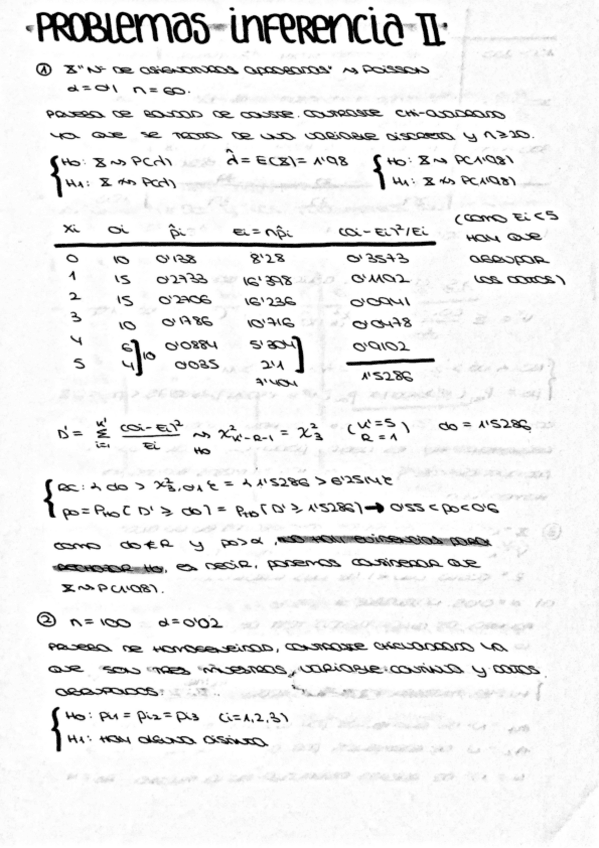 PROBLEMAS INFERENCIA II
① X "Nº DE ASIGNATURAS APROBADAS" ~> POISSON
α=0'1 n=60.
PRUEBA DE BONDAD DE AJUSTE. CONTRASTE CHI-CUADRADO
YA QUE SE TRATA DE UNA VARIABLE DISCRETA Y n≥30.
{ H0: X ~> P(λ) λ̂ = E(X) = 1'98 { H0: X ~> P(1'98)
H1: X ≁> P(λ) H1: X ≁> P(1'98)
xi Oi p̂i Ei = np̂i (Oi - Ei)²/Ei (COMO Ei<5
HAY QUE
AGRUPAR
LOS DATOS)
0 10 0'138 8'28 0'3573
1 15 0'2733 16'398 0'1192
2 15 0'2706 16'236 0'0941
3 10 0'1786 10'716 0'0478
4 6 ] 10 0'0884 5'304 ] 0'9102
5 4 0'035 2'1
7'404 1'5286
D' = Σ (Oi - Ei)²/Ei ~> χ²k'-R-1 = χ²3 (k'=5 R=1) d0 = 1'5286
i=1 k' H0
{ RC: { d0 > χ²3,0'1 } = { 1'5286 > 6'2514 }
p0 = PH0 ( D' ≥ d0 ) = PH0 ( D' ≥ 1'5286 ) → 0'55 < p0 < 0'6
COMO d0 ∉ R Y p0 > α, NO HAY EVIDENCIAS PARA
RECHAZAR H0, ES DECIR, PODEMOS CONSIDERAR QUE
X ~> P(1'98).
② n=100 α=0'02
PRUEBA DE HOMOGENEIDAD, CONTRASTE CHI-CUADRADO YA
QUE SON TRES MUESTRAS, VARIABLE CONTINUA Y DATOS
AGRUPADOS:
{ H0: pi1 = pi2 = pi3 (i=1,2,3)
H1: HAY ALGUNA DISTINTA